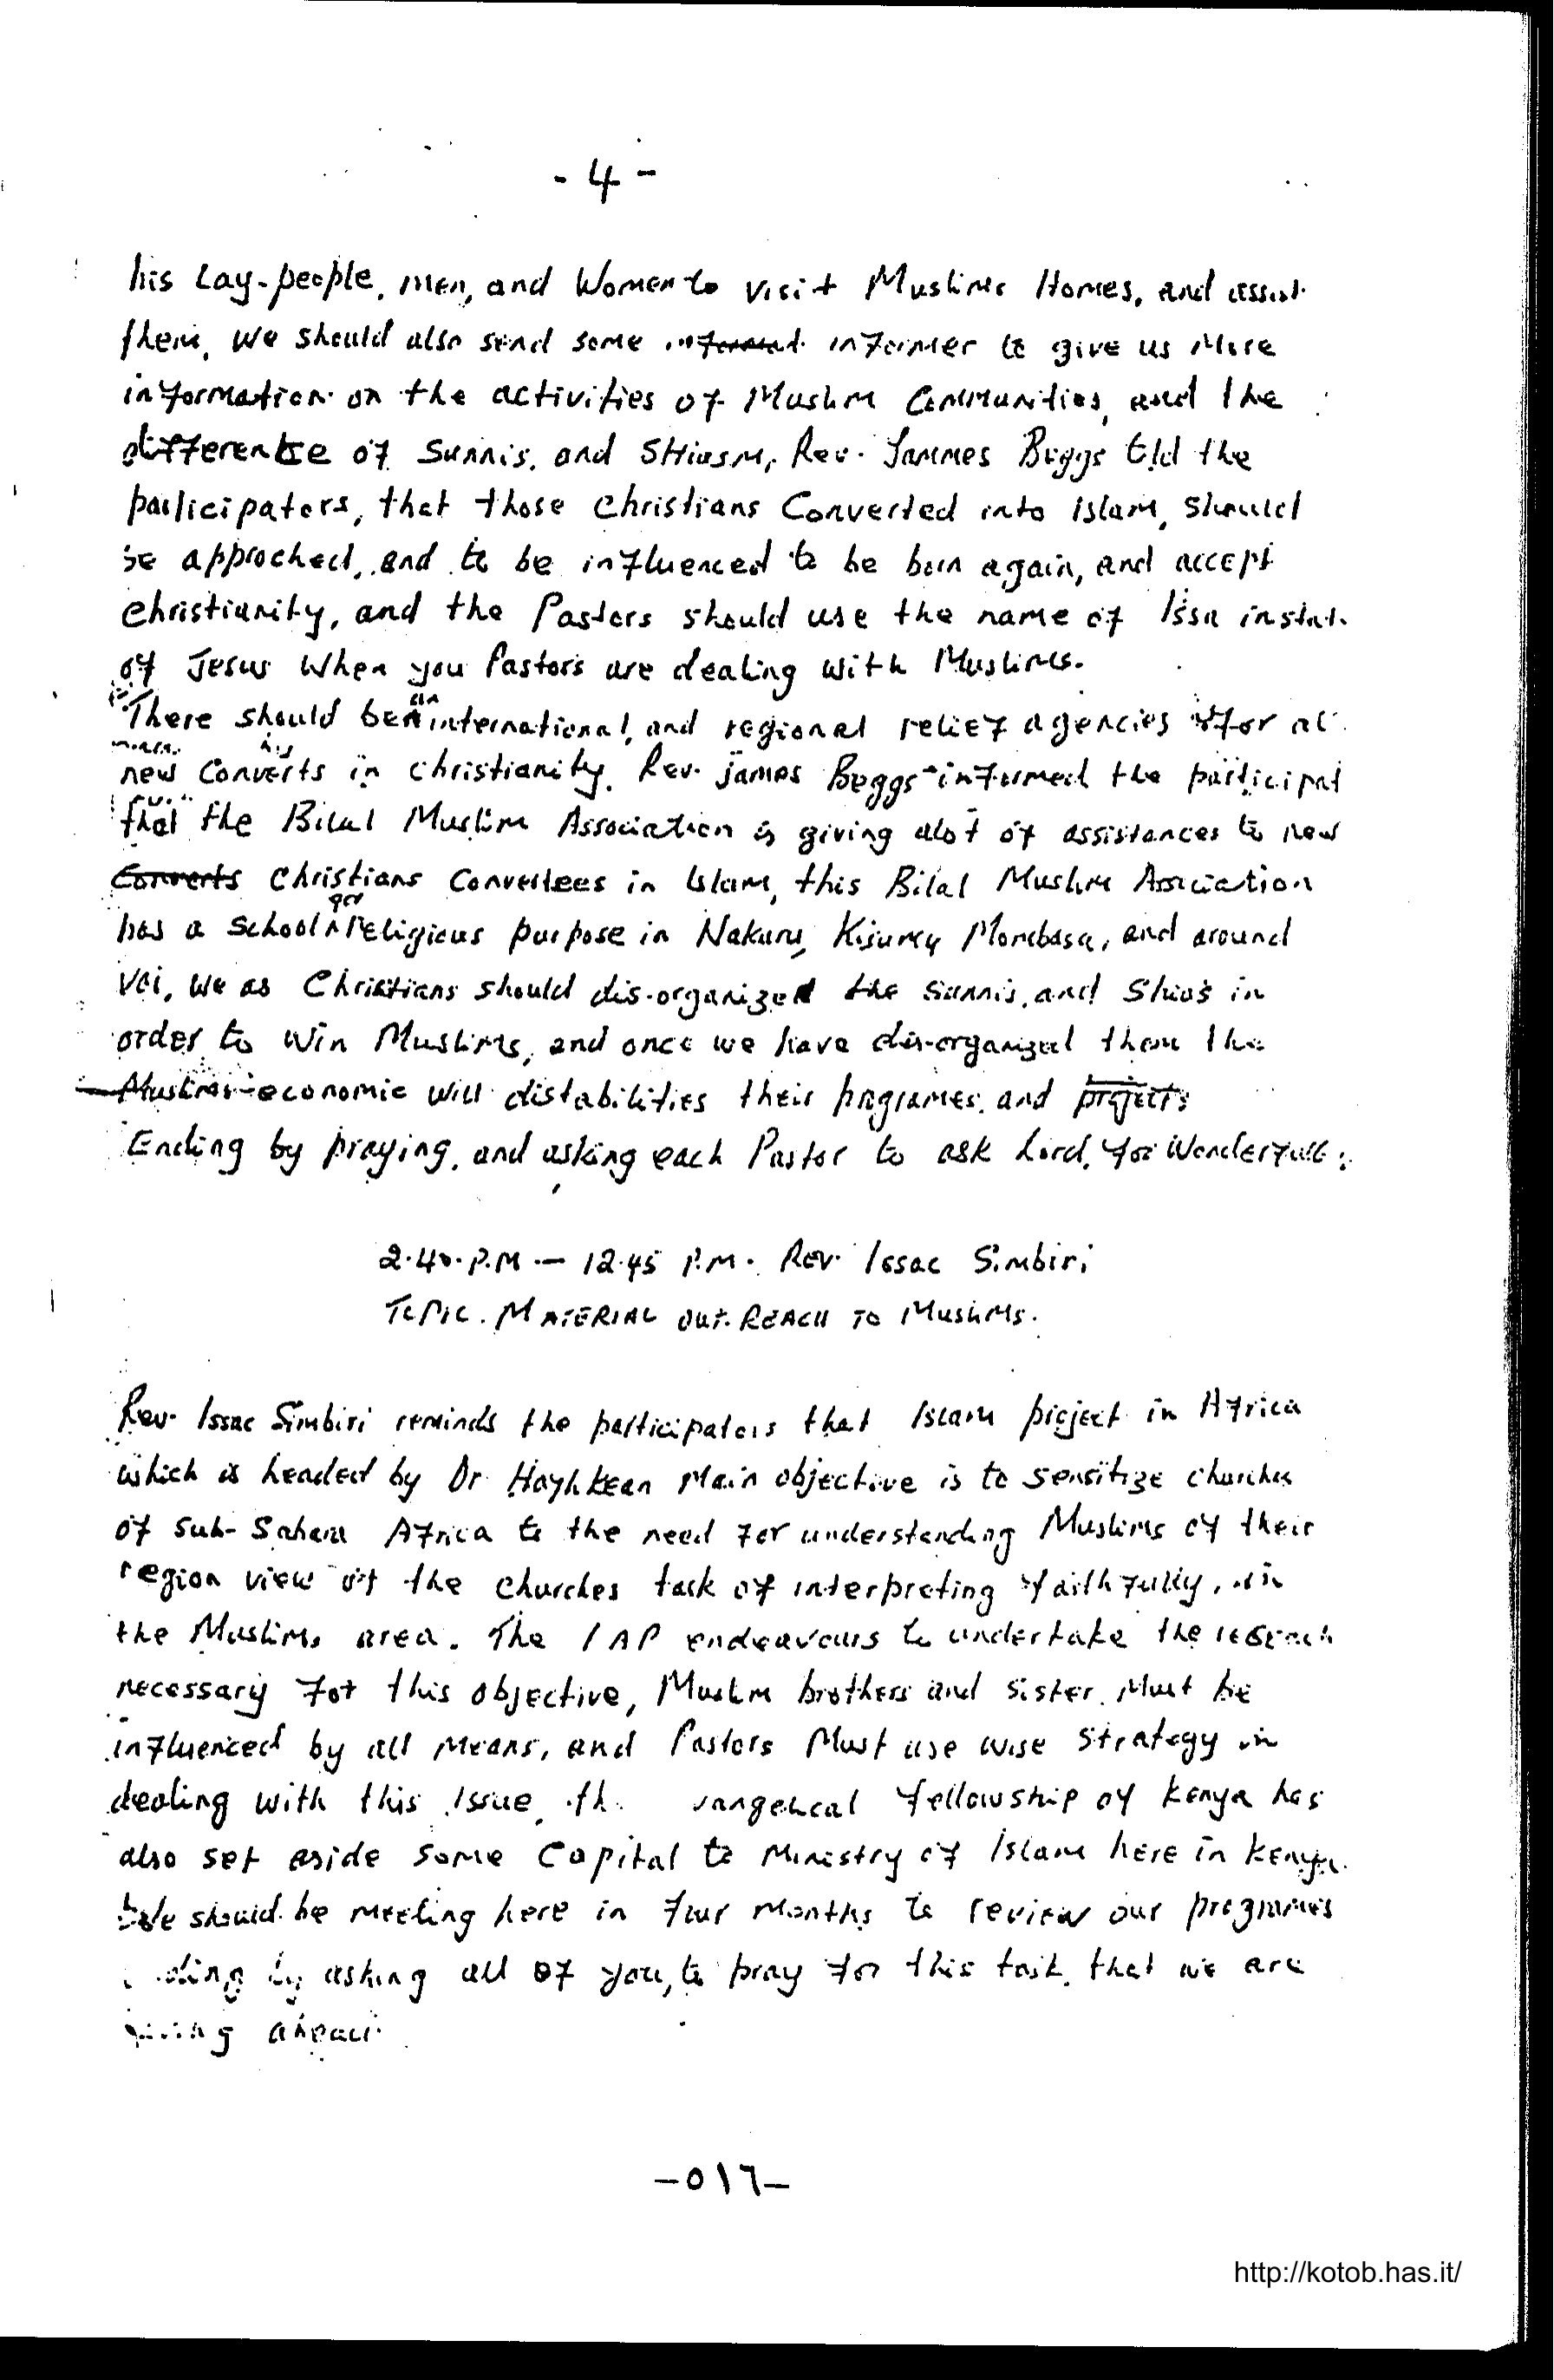 - 4 -
his Lay-people, men, and Women to visit Muslims Homes, and assist
them, we should also send some informer to give us More
information on the activities of Muslim Communities, and the
difference of Sunnis. and SHiasm, Rev. Jammes Beggs told the
participators, that those Christians Converted into Islam, should
be approched, and to be influenced to be born again, and accept
Christianity, and the Pastors should use the name of Issa instat.
of Jesus When you Pastors are dealing with Muslims.
There should be an international, and regional relief agencies for al
new Converts in christianity. Rev. James Beggs informed the participat
that the Bilal Muslim Association is giving alot of assistances to new
Converts Christians Convertees in Islam, this Bilal Muslim Association
has a School for religious purpose in Nakuru, Kisumu Mombasa, and around
Voi, We as Christians should dis-organized the Sunnis, and Shias in
order to Win Muslims, and once we have dis-organized them the
Muslims-economic will distabilities their programes. and projects
Ending by praying. and asking each Pastor to ask Lord, for Wonderfull
2.40. P.M - 12.45 P.M. Rev. Issac Simbiri
Topic. MATERIAL OUT-REACH TO MUSLIMS.
Rev. Issac Simbiri reminds the participators that Islam project in Africa
which is headed by Dr. Main objective is to sensitize churches
of Sub-Sahara Africa to the need for understanding Muslims of their
region view of the churches task of interpreting faithfully, in
the Muslims area. The IAP endeavours to undertake the research
necessary for this objective, Muslim brothers and sister. Must be
influenced by all Means, and Pastors Must use wise strategy in
dealing with this issue, th vangelical fellowship of Kenya has
also set aside some Capital to Ministry of Islam here in Kenya.
We should be meeting here in four Months to review our programmes
by asking all of you, to pray for this task, that we are
ahead.
-٥١٦-
http://kotob.has.it/